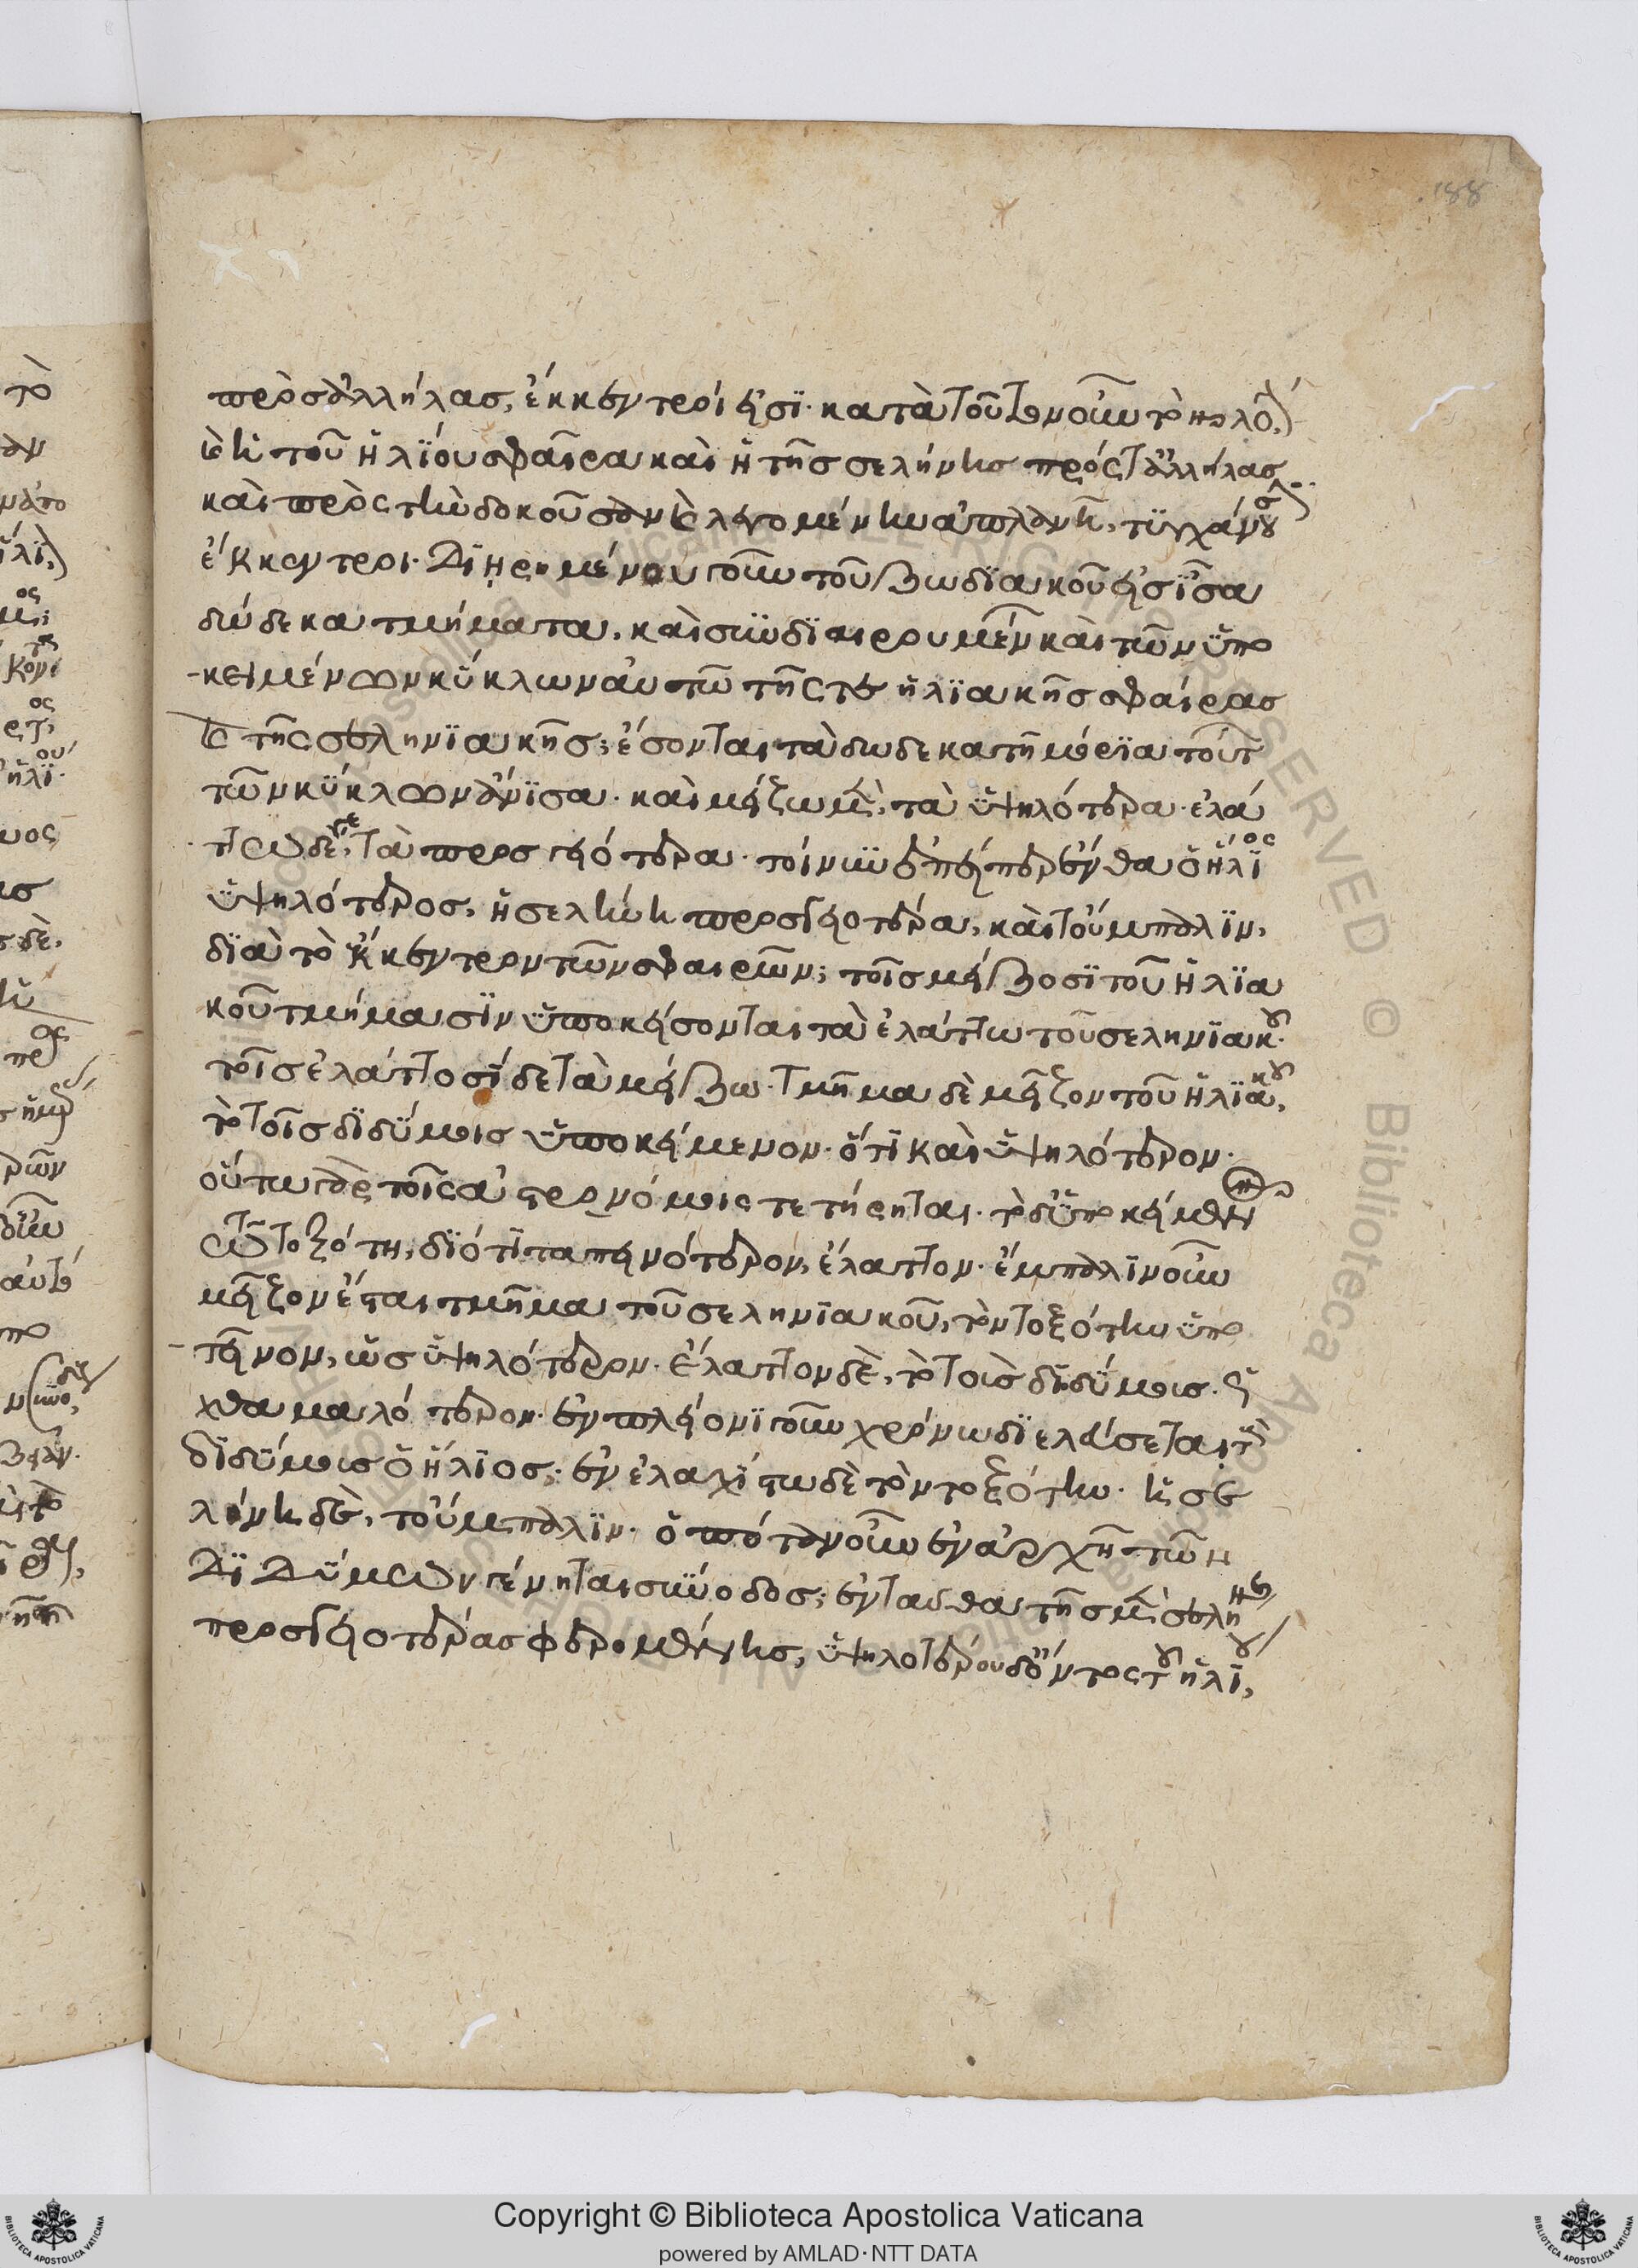 188
πρὸς ἀλλήλας, ἔκκεντροί εἰσι· κατὰ τοῦτον οὖν τὸν λό,
καὶ ἡ τοῦ ἡλίου σφαῖρα καὶ ἡ τῆς σελήνης πρός τ' ἀλλήλας
καὶ πρὸς τὴν δοκοῦσαν καὶ λεγομένην ἀπλανῆ, τυγχάνουσ
ἔκκεντροι. Διῃρημένου γοῦν τοῦ ζωδιακοῦ εἰς ἴσα
δώδεκα τμήματα, καὶ συνδιαιρουμέν καὶ τῶν ὑπο
κειμένων κύκλων αὐτῶ τῆς τε ἡλιακῆς σφαίρας
καὶ τῆς σεληνιακῆς· ἔσονται τὰ δωδεκατημόρια τούτ
τῶν κύκλων ἄνισα. καὶ μείζω μὲν, τὰ ὑψηλότερα· ἐλά
τω δέ γε, τὰ προσγειότερα. τοίνυν ἐπείπερ ἔνθα ὁ ἥλιος
ὑψηλότερος, ἡ σελήνη προσγειοτέρα, καὶ τοὔμπαλιν,
διὰ τὸ ἔκκεντρον τῶν σφαιρῶν· τοῖς μείζοσι τοῦ ἡλια
κοῦ τμήμασιν ὑποκείσονται τὰ ἐλάττω τοῦ σεληνιακοῦ.
τοῖς ἐλάττοσι δὲ τὰ μείζω. τμῆμα δὲ μεῖζον τοῦ ἡλιακοῦ,
τὸ τοῖς διδύμοις ὑποκείμενον. ὅτι καὶ ὑψηλότερον.
οὕτω γὰρ τοῖς ἀστρονόμοις τετήρηται. τὸ δ' ὑποκείμενον
τῶ τοξότη, διότι ταπεινότερον, ἔλαττον. ἔμπαλιν οὖν
μεῖζον ἔσται τμῆμα τοῦ σεληνιακοῦ, τὸ τὸν τοξότην ὑπο
τεῖνον, ὡς ὑψηλότερον. ἔλαττον δὲ, τὸ τοὺς διδύμους.
χθαμαλότερον. ἐν πλείονι γοῦν χρόνω διελάσεται τοὺς
διδύμους ὁ ἥλιος· ἐν ἐλαχίστω δὲ τὸν τοξότην. ἡ σε
λήνη δὲ, τοὔμπαλιν. ὁπόταν οὖν ἐν ἀρχῆ τῶν
Διδύμων γένηται σύνοδος· ἐνταῦθα τῆς μὲν σελήνης
προσγειοτέρας φερομένης, ὑψηλοτέρου δ' ὄντος τοῦ ἡλίου,
Copyright © Biblioteca Apostolica Vaticana
powered by AMLAD·NTT DATA